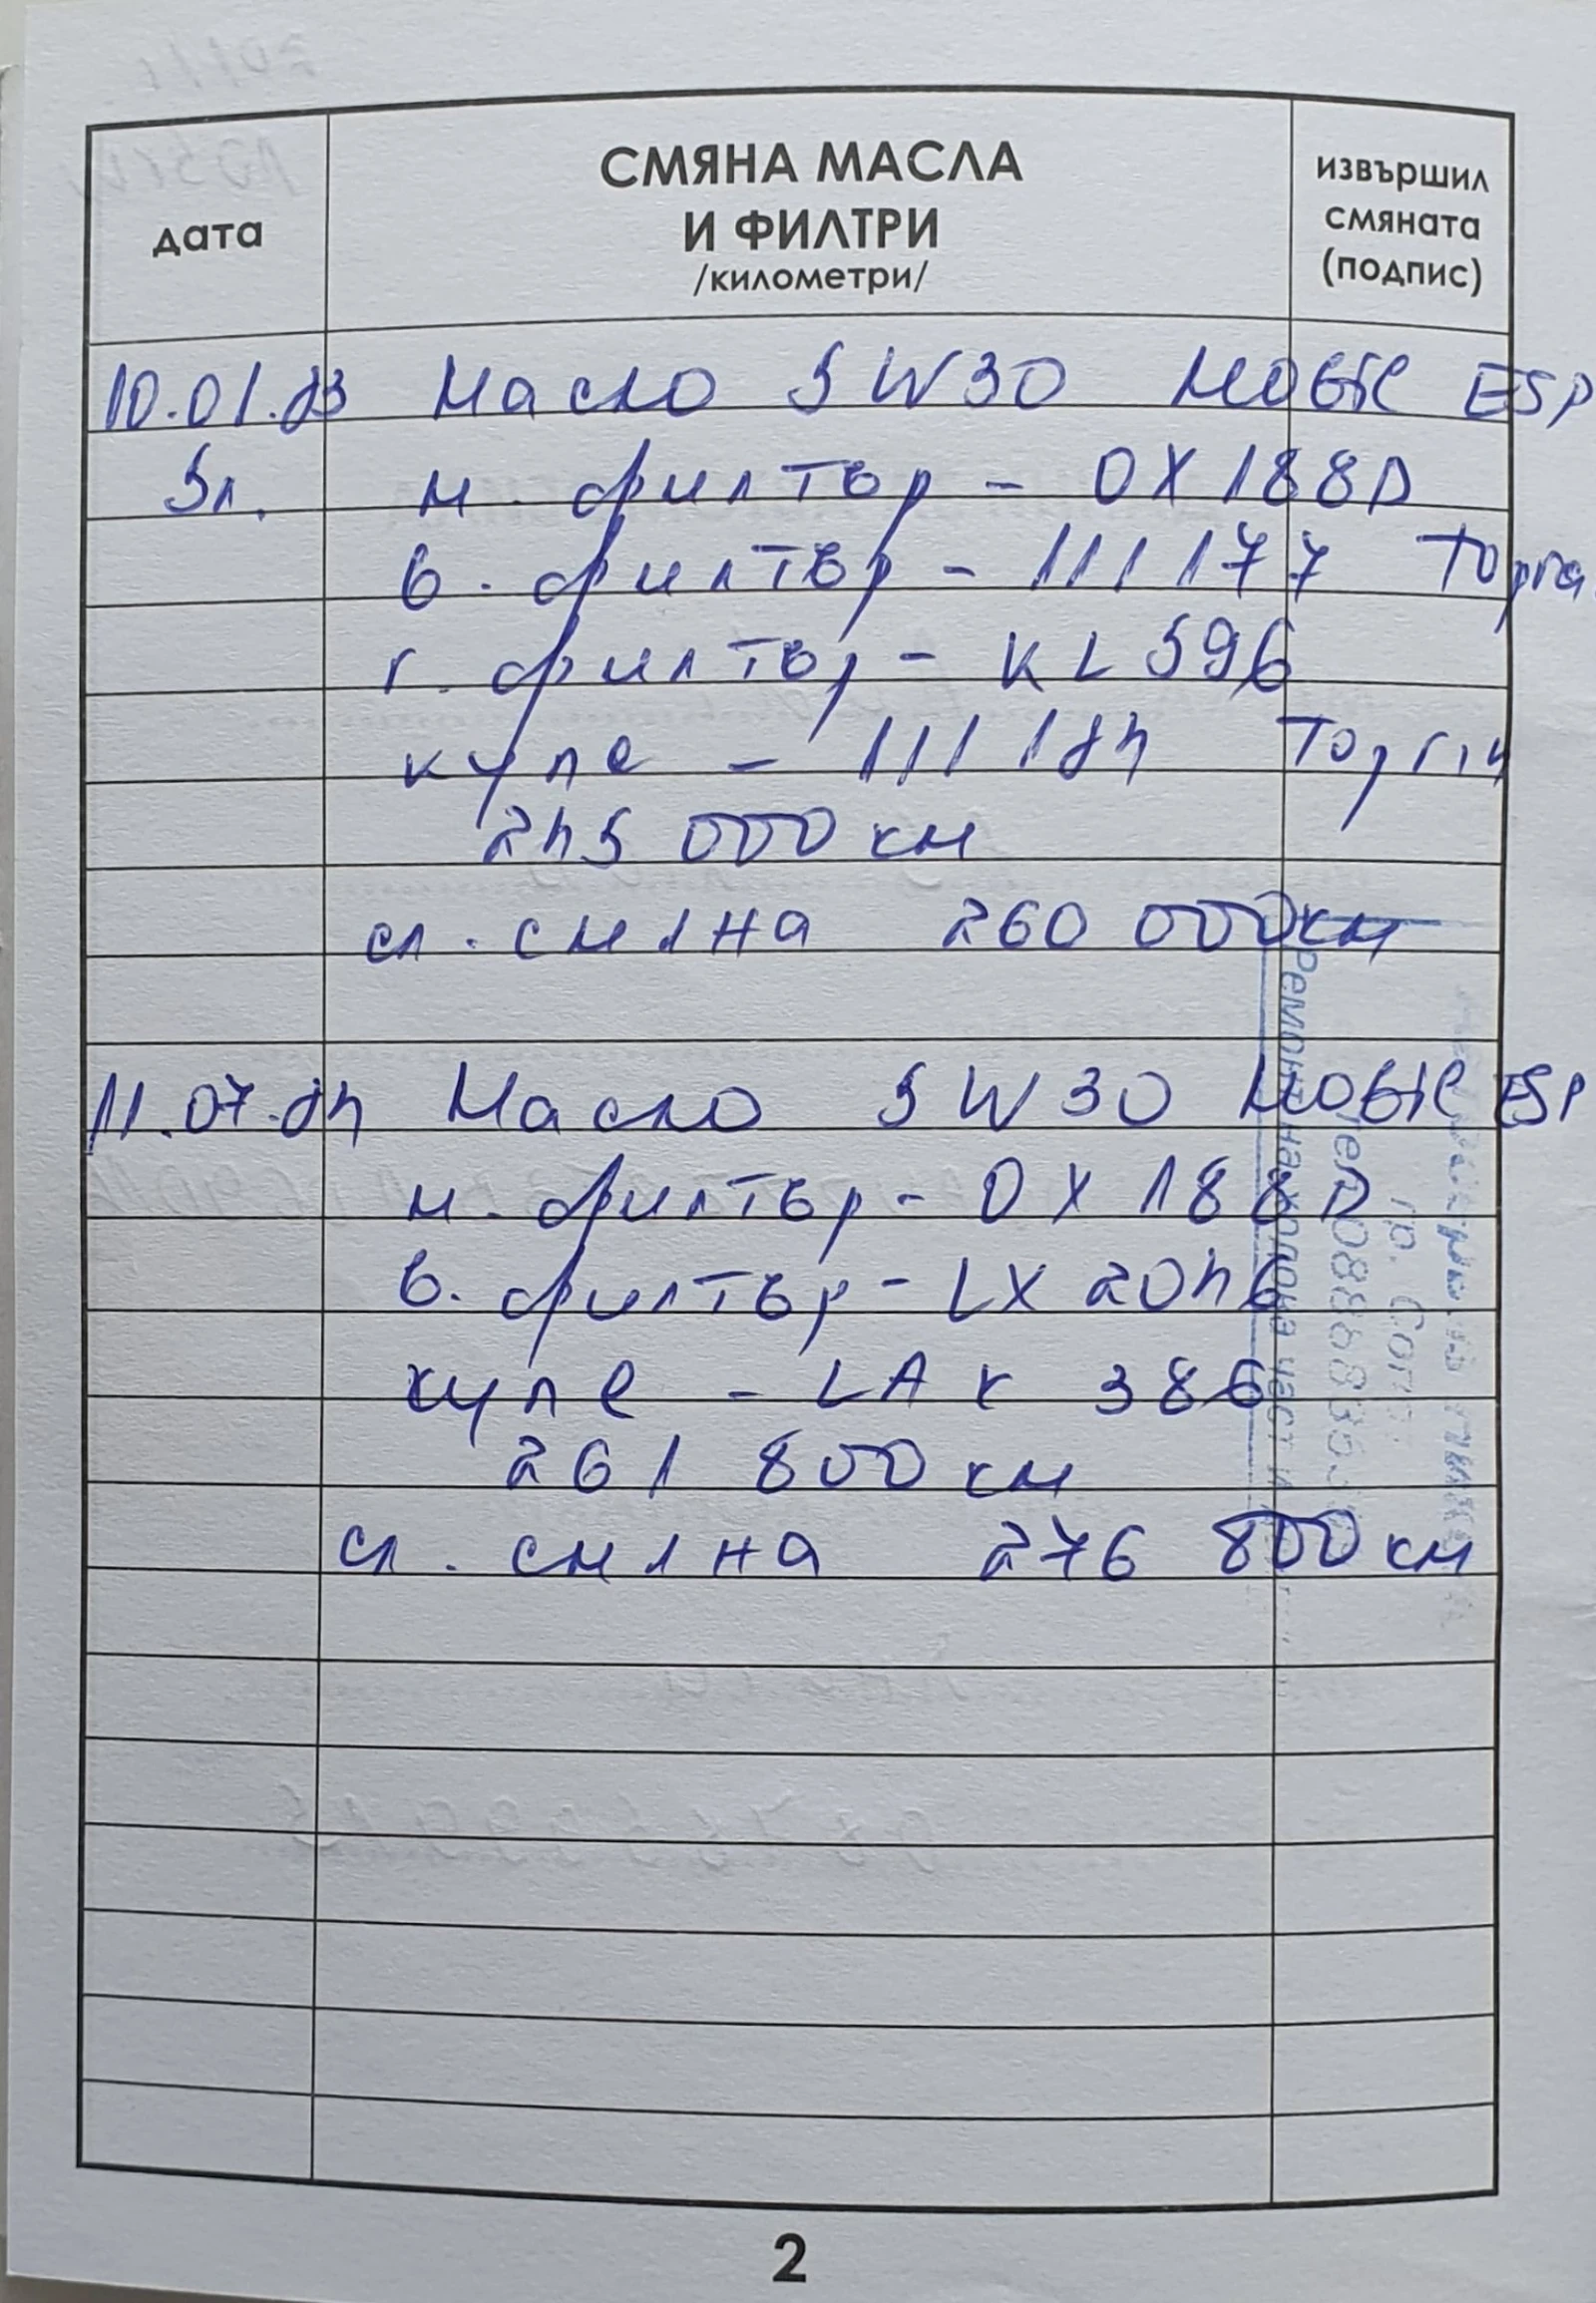 дата
СМЯНА МАСЛА
И ФИЛТРИ
/километри/
извършил
смяната
(подпис)
10.01.23 Масло 5W30 Mobil ESP
5л. м. филтър - OX 188D
в. филтър - 111 177
г. филтър - KL 596
купе - 111 124
245 000 км
сл. смяна 260 000 км
11.07.24 Масло 5W30 Mobil ESP
м. филтър - OX 188D
в. филтър - LX 2046
купе - LAK 386
261 800 км
сл. смяна 276 800 км
2